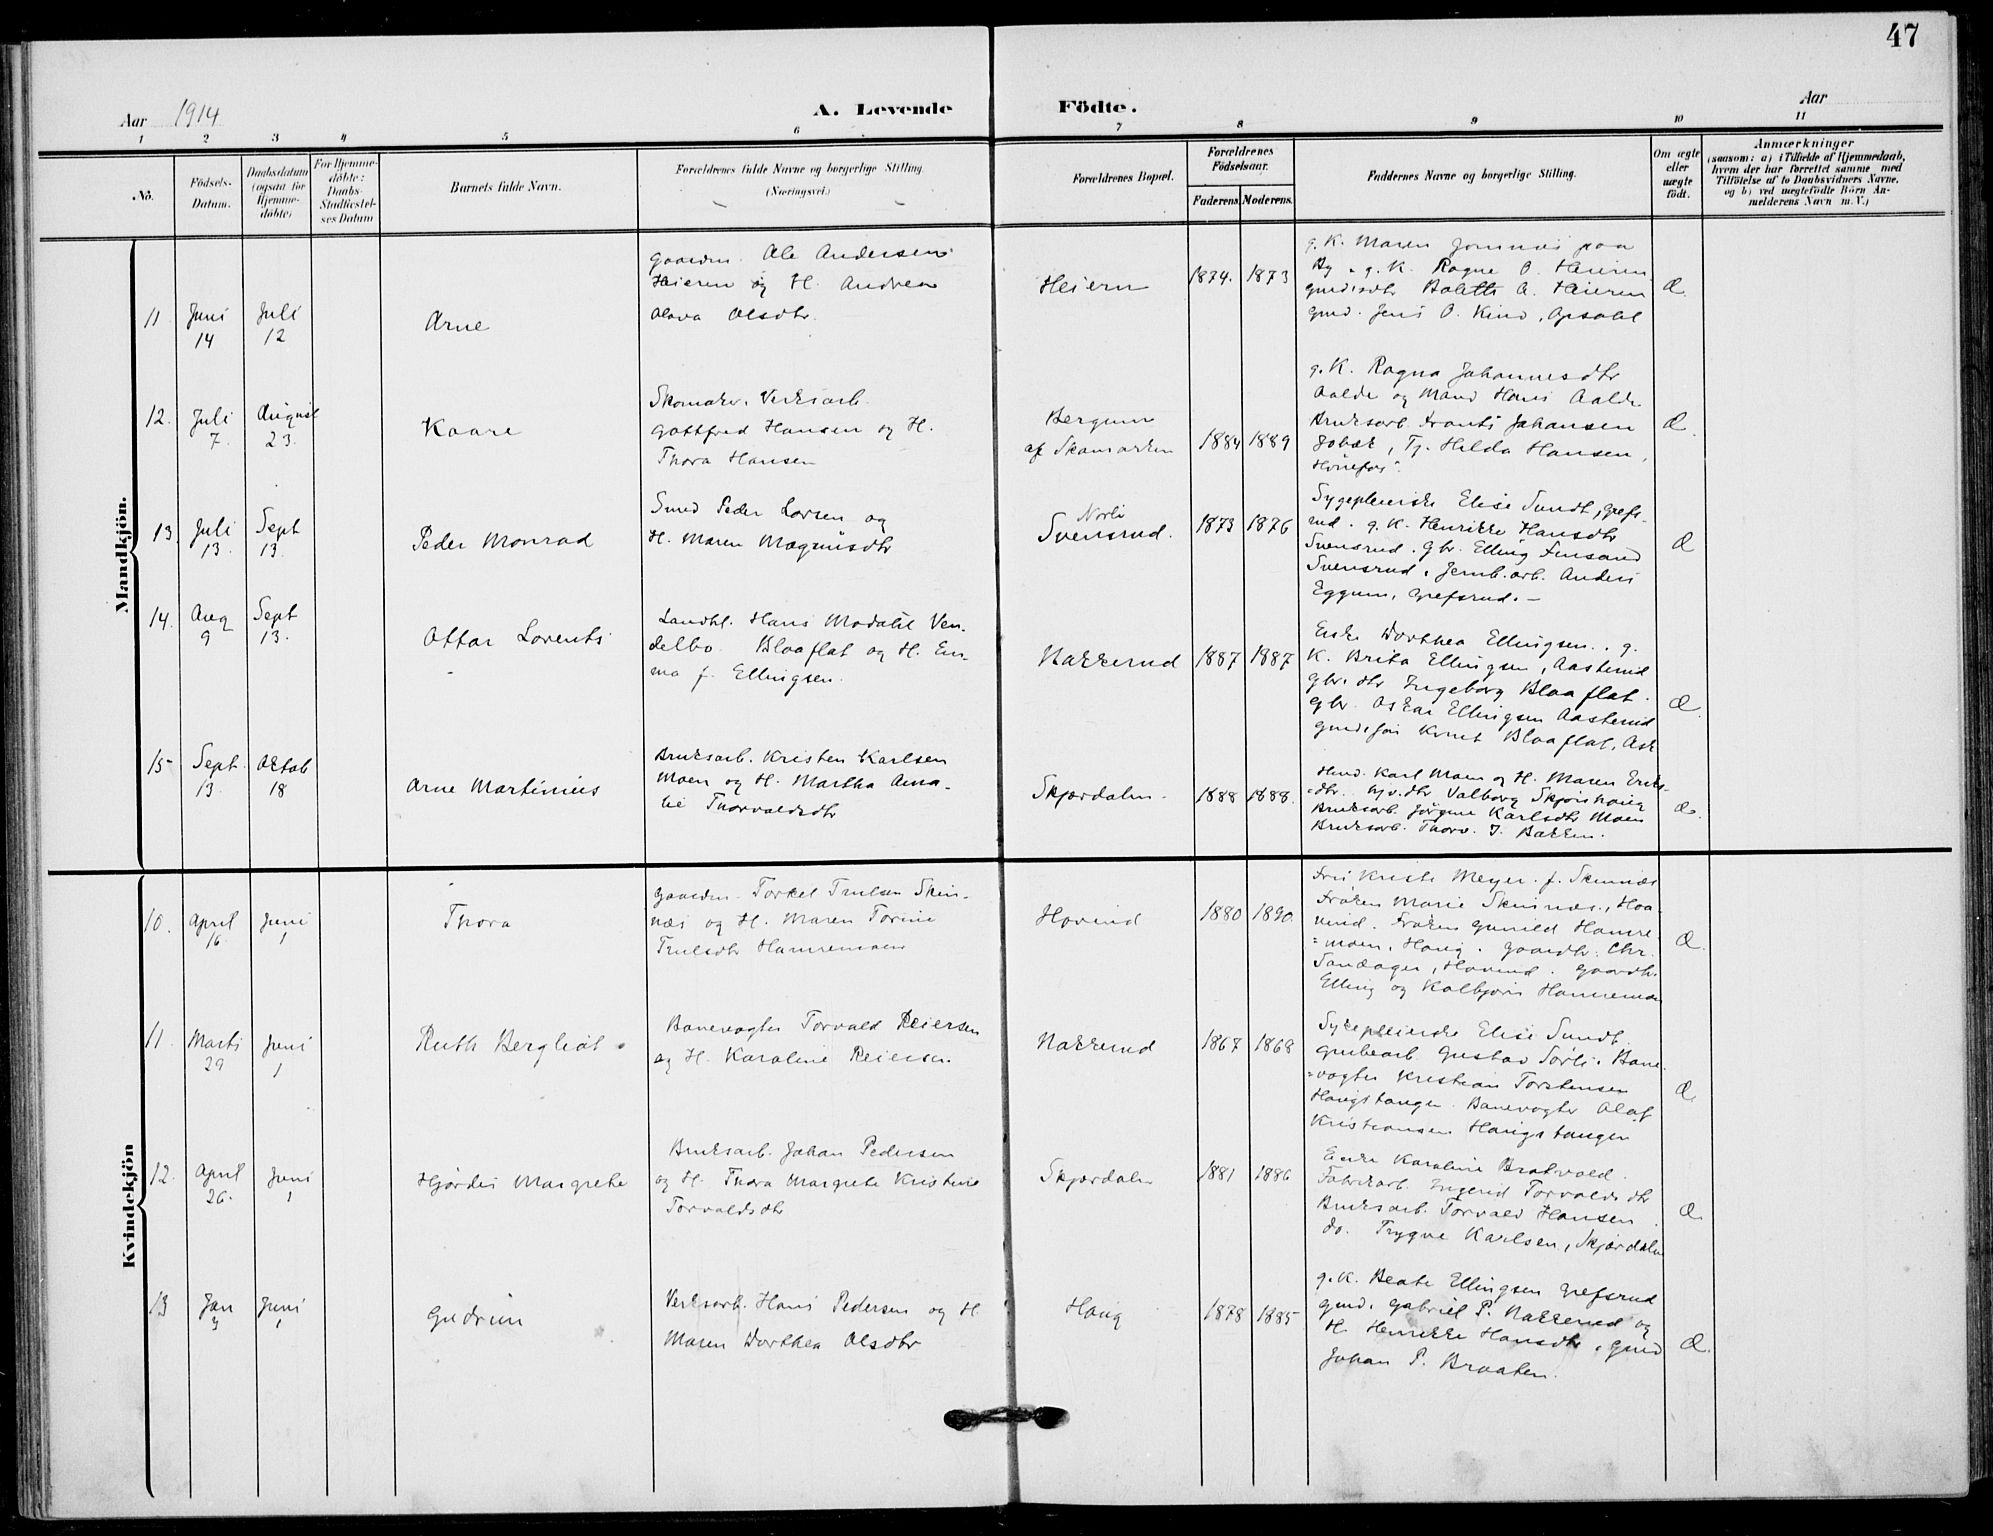 47
Aar 1914
A. Levende
Födte.
Aar
1 2 3 4 5 6 7 8 9 10 11
No.
Födsels-
Datum.
Daabsdatum
(ogsaa for
Hjemme-
döbte)
For Hjemme-
döbte:
Daabs-
Stadfæstel-
ses Datum
Barnets fulde Navn.
Forældrenes fulde Navne og borgerlige Stilling
(Næringsvei.)
Forældrenes Bopæl.
Forældrenes
Födselsaar.
Faderens. Moderens.
Faddernes Navne og borgerlige Stilling.
Om ægte
eller
uægte
födt.
Anmærkninger
(saasom: a) i Tilfælde af Hjemmedaab,
hvem der har forrettet samme med
Tilföielse af to Daabsvidners Navne,
og b) ved uægtefödte Börn An-
melderens Navn m. V.)
Mandkjön.
11. Juni
14
Juli
12
Arne
Gaardm. Ole Andersen
Heieren og H. Andrea
Olava Olsdtr.
Heiern
1874. 1873
g. K. Maren paa
By. g. K. Ragne O. Heieren
gmd.sdtr Bolette A. Heieren
gmd. Jens O. Kind, Opsahl
Æ.
12. Juli
7.
August
23.
Kaare
Skomaker. Verksarb.
Gottfred Hansen og H.
Thora Hansen
Bergum
af Skamarken
1884 1889
g. K. Ragna Johannesdtr
Aalde og Mand Hans Aalde
Bruksarb. Frants Johansen
Tj. Hilda Hansen,
Hönefos.
Æ.
13. Juli
13.
Sept
13.
Peder Monrad
Smed Peder Larsen og
H. Maren Magnusdtr
Norli
Svensrud.
1873 1876
Sygepleierske Elise Sundt, Grefs-
rud. g. K. Henrikke Hansdtr
Svensrud. Gbr. Elling Finsand
Svensrud. Jernb.arb. Anders
Eggum, Grefsrud. —
Æ
14. Aug
9
Sept
13.
Ottar Lorents
Landhl. Hans Modahl Ven-
delbo. Blaaflat og H. Em-
ma f. Ellingsen.
Nakkerud
1887 1887
Enke Dorthea Ellingsen. g.
K. Brita Ellingsen, Aasterud
Gbr. dtr Ingeborg Blaaflat.
Gbr. Oskar Ellingsen Aasterud
Knut Blaaflat, Ask
Æ.
15 Sept.
13.
Oktob
18
Arne Martinius
Bruksarb. Kristen Karlsen
Moen og H. Martha Ama-
lie Thorvaldsdtr
Skjærdalen.
1888 1888.
Hmd. Karl Moen og H. Maren Eriks-
dtr. Valborg Skjörshaug
Bruksarb. Jörgine Karlsdtr Moen
Bruksarb. Thorv. J. Bakken.
Æ.
Kvindekjön
10. April
16.
Juni
1
Thora
Gaardm. Torkel Trulsen Skin-
næs og H. Maren Torine
Trulsdtr Hamremoen
Hovind
1880 1890.
Fru Kristi Meyer f. Skinnæs
Fröken Marie Skinnæs, Ho-
vind. Fröken Gunild Hamre-
=moen, Haug. Gaardbr. Chr.
Sandager, Hovind. Gaardbr.
Elling og Kolbjörn Hamremoen
Æ.
11. Marts
29
Juni
1
Ruth Bergliot.
Banevogter Torvald Reiersen
og H. Karoline Reiersen.
Nakkerud
1867 1868
Sykepleierske Elise Sundt.
Grubearb. Gustav Sörli. Bane-
=vogter Kristian Torstensen
Haugstangen. Banevogter Olaf
Kristiansen Haugstangen
Æ.
12. April
26.
Juni
1
Hjördis Margrethe
Bruksarb. Johan Pedersen
og H. Thora Margrete Kristine
Torvaldsdtr
Skjærdalen
1881 1886
Enke Karoline Bratvold.
Fabrikarb. Ingerid Torvaldsdtr
Bruksarb. Torvald Hansen
do. Trygve Karlsen, Skjærdalen
Æ.
13 Jan
3
Juni
1
Gudrun
Verksarb. Hans Pedersen og H
Maren Dorthea Olsdtr
Haug
1878 1885
g. K. Beate Ellingsen Grefsrud
Gmd. Gabriel P. Nakkerud og
H. Henrikke Hansdtr. Gmd
Johan P. Braaten.
Æ.